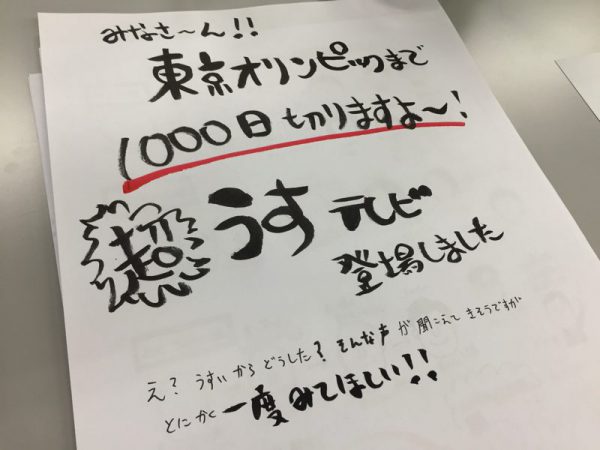 みなさ〜ん!!
東京オリンピックまで
1000日切りますよ〜!
超うすテレビ
登場しました
え?うすいからどうした?そんな声が聞こえてきそうですが
とにかく一度みてほしい!!